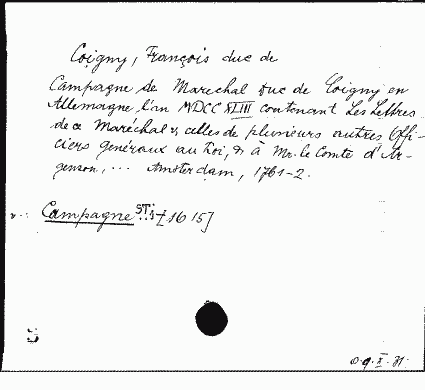 Coigny, François duc de
Campagne de Marechal Duc de Coigny en
Allemagne l'an MDCCXLIII contenant Les Lettres
de ce Maréchal & celles de plusieurs autres Offi-
ciers generaux au Roi, & à Mr. le Comte d'Ar-
genson, ... Amsterdam, 1761-2.
Campagne ST.
1615]
S
9.X.81.